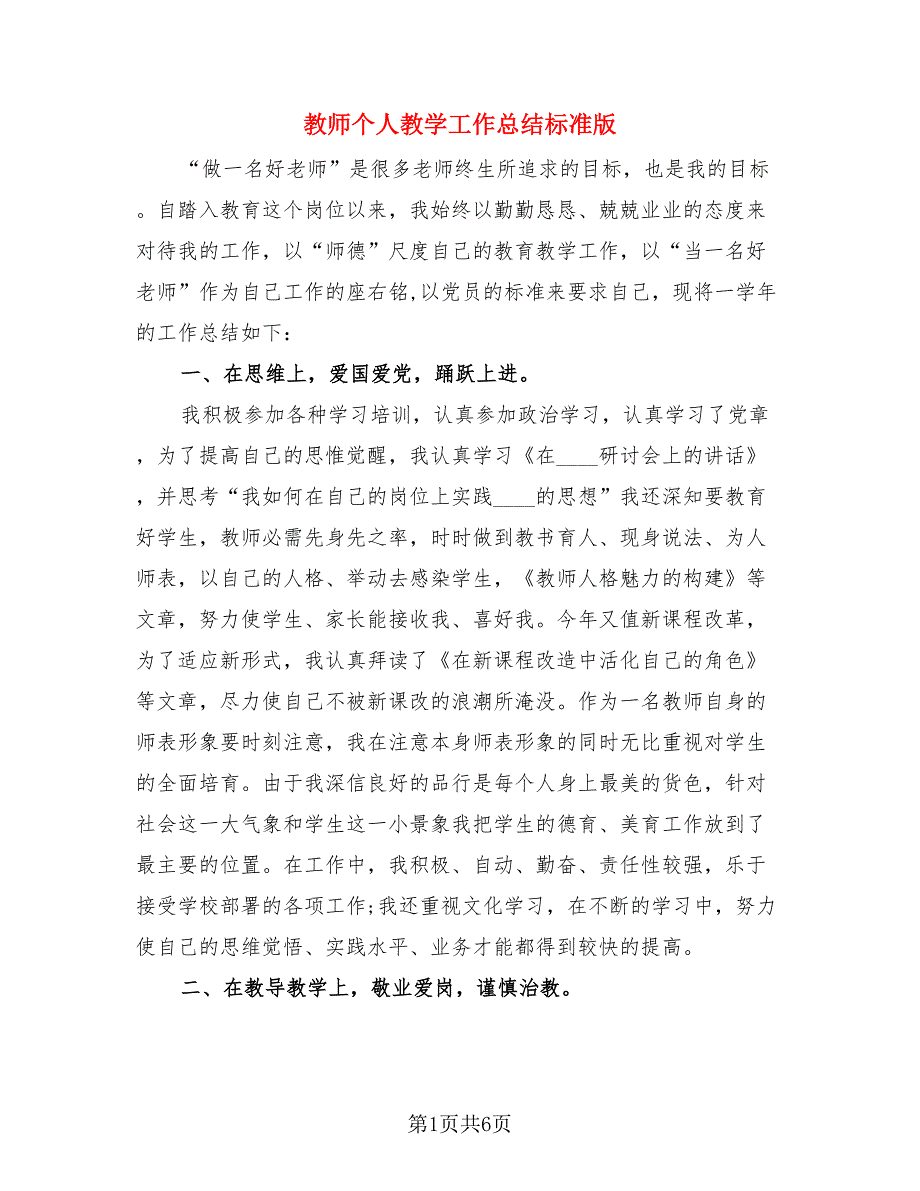 教师个人教学工作总结标准版
“做一名好老师”是很多老师终生所追求的目标，也是我的目标
。自踏入教育这个岗位以来，我始终以勤勤恳恳、兢兢业业的态度来
对待我的工作，以“师德”尺度自己的教育教学工作，以“当一名好
老师”作为自己工作的座右铭,以党员的标准来要求自己，现将一学年
的工作总结如下：
一、在思维上，爱国爱党，踊跃上进。
我积极参加各种学习培训，认真参加政治学习，认真学习了党章
，为了提高自己的思惟觉醒，我认真学习《在____研讨会上的讲话》
，并思考“我如何在自己的岗位上实践____的思想”我还深知要教育
好学生，教师必需先身先之率，时时做到教书育人、现身说法、为人
师表，以自己的人格、举动去感染学生，《教师人格魅力的构建》等
文章，努力使学生、家长能接收我、喜好我。今年又值新课程改革，
为了适应新形式，我认真拜读了《在新课程改造中活化自己的角色》
等文章，尽力使自己不被新课改的浪潮所淹没。作为一名教师自身的
师表形象要时刻注意，我在注意本身师表形象的同时无比重视对学生
的全面培育。由于我深信良好的品行是每个人身上最美的货色，针对
社会这一大气象和学生这一小景象我把学生的德育、美育工作放到了
最主要的位置。在工作中，我积极、自动、勤奋、责任性较强，乐于
接受学校部署的各项工作;我还重视文化学习，在不断的学习中，努力
使自己的思维觉悟、实践水平、业务才能都得到较快的提高。
二、在教导教学上，敬业爱岗，谨慎治教。
第1页共6页